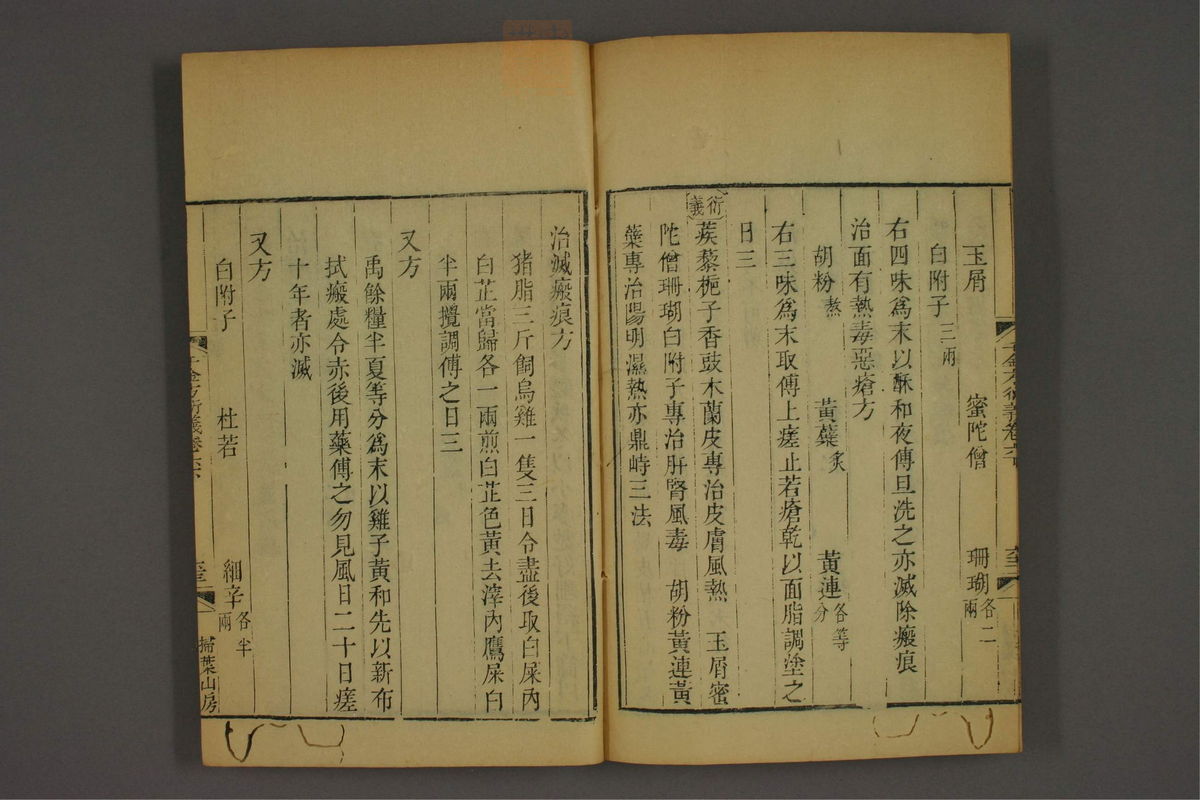 玉屑 蜜陀僧 珊瑚各二兩
白附子三兩
右四味爲末以酥和夜傅旦洗之亦滅除瘢痕
治面有熱毒惡瘡方
胡粉熬 黃蘗炙 黃連各等分
右三味爲末取傅上瘥止若瘡乾以面脂調塗之
日三
衍義 蒺藜梔子香豉木蘭皮專治皮膚風熱 玉屑蜜
陀僧珊瑚白附子專治肝腎風毒 胡粉黃連黃
蘗專治陽明濕熱亦鼎峙三法
治滅瘢痕方
猪脂三斤飼烏雞一隻三日令盡後取白屎內
白芷當歸各一兩煎白芷色黃去滓內鷹屎白
半兩攪調傅之日三
又方
禹餘糧半夏等分爲末以雞子黃和先以新布
拭瘢處令赤後用藥傅之勿見風日二十日瘥
十年者亦滅
又方
白附子 杜若 細辛各半兩
千金方衍義卷六
掃葉山房